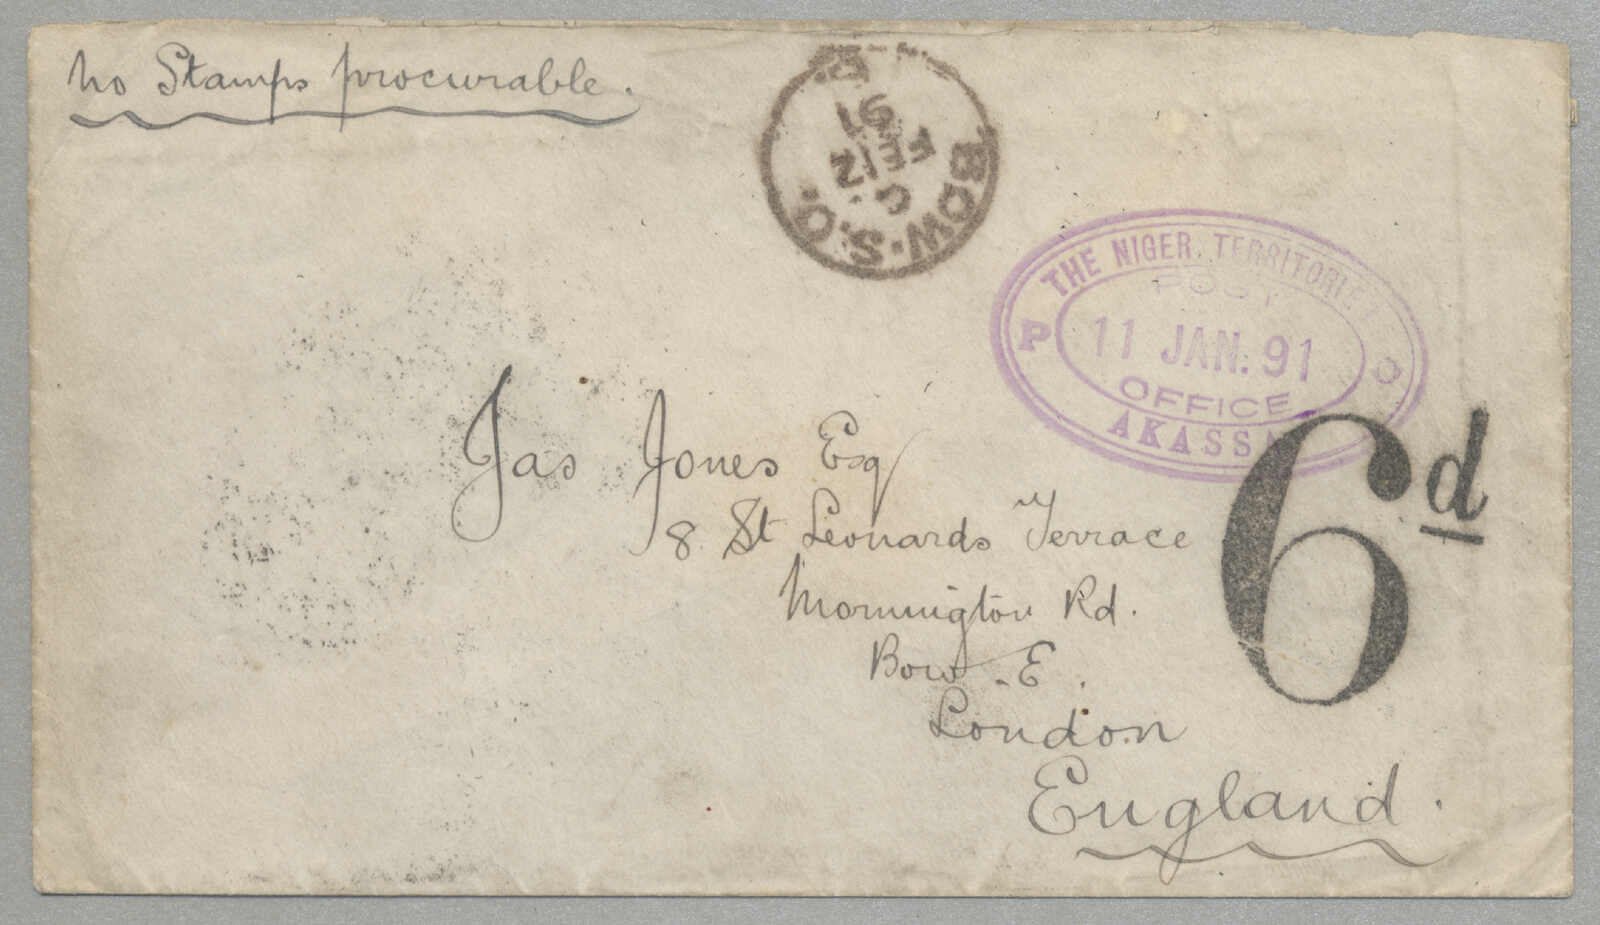 no Stamps procurable.
BOW.S.O.
C
FE12
91
THE NIGER TERRITORIES
P O
POST
11 JAN. 91
OFFICE
AKASSA
6d
Jas Jones Esq
8 St Leonards Terrace
Mornington Rd.
Bow. E.
London
England.